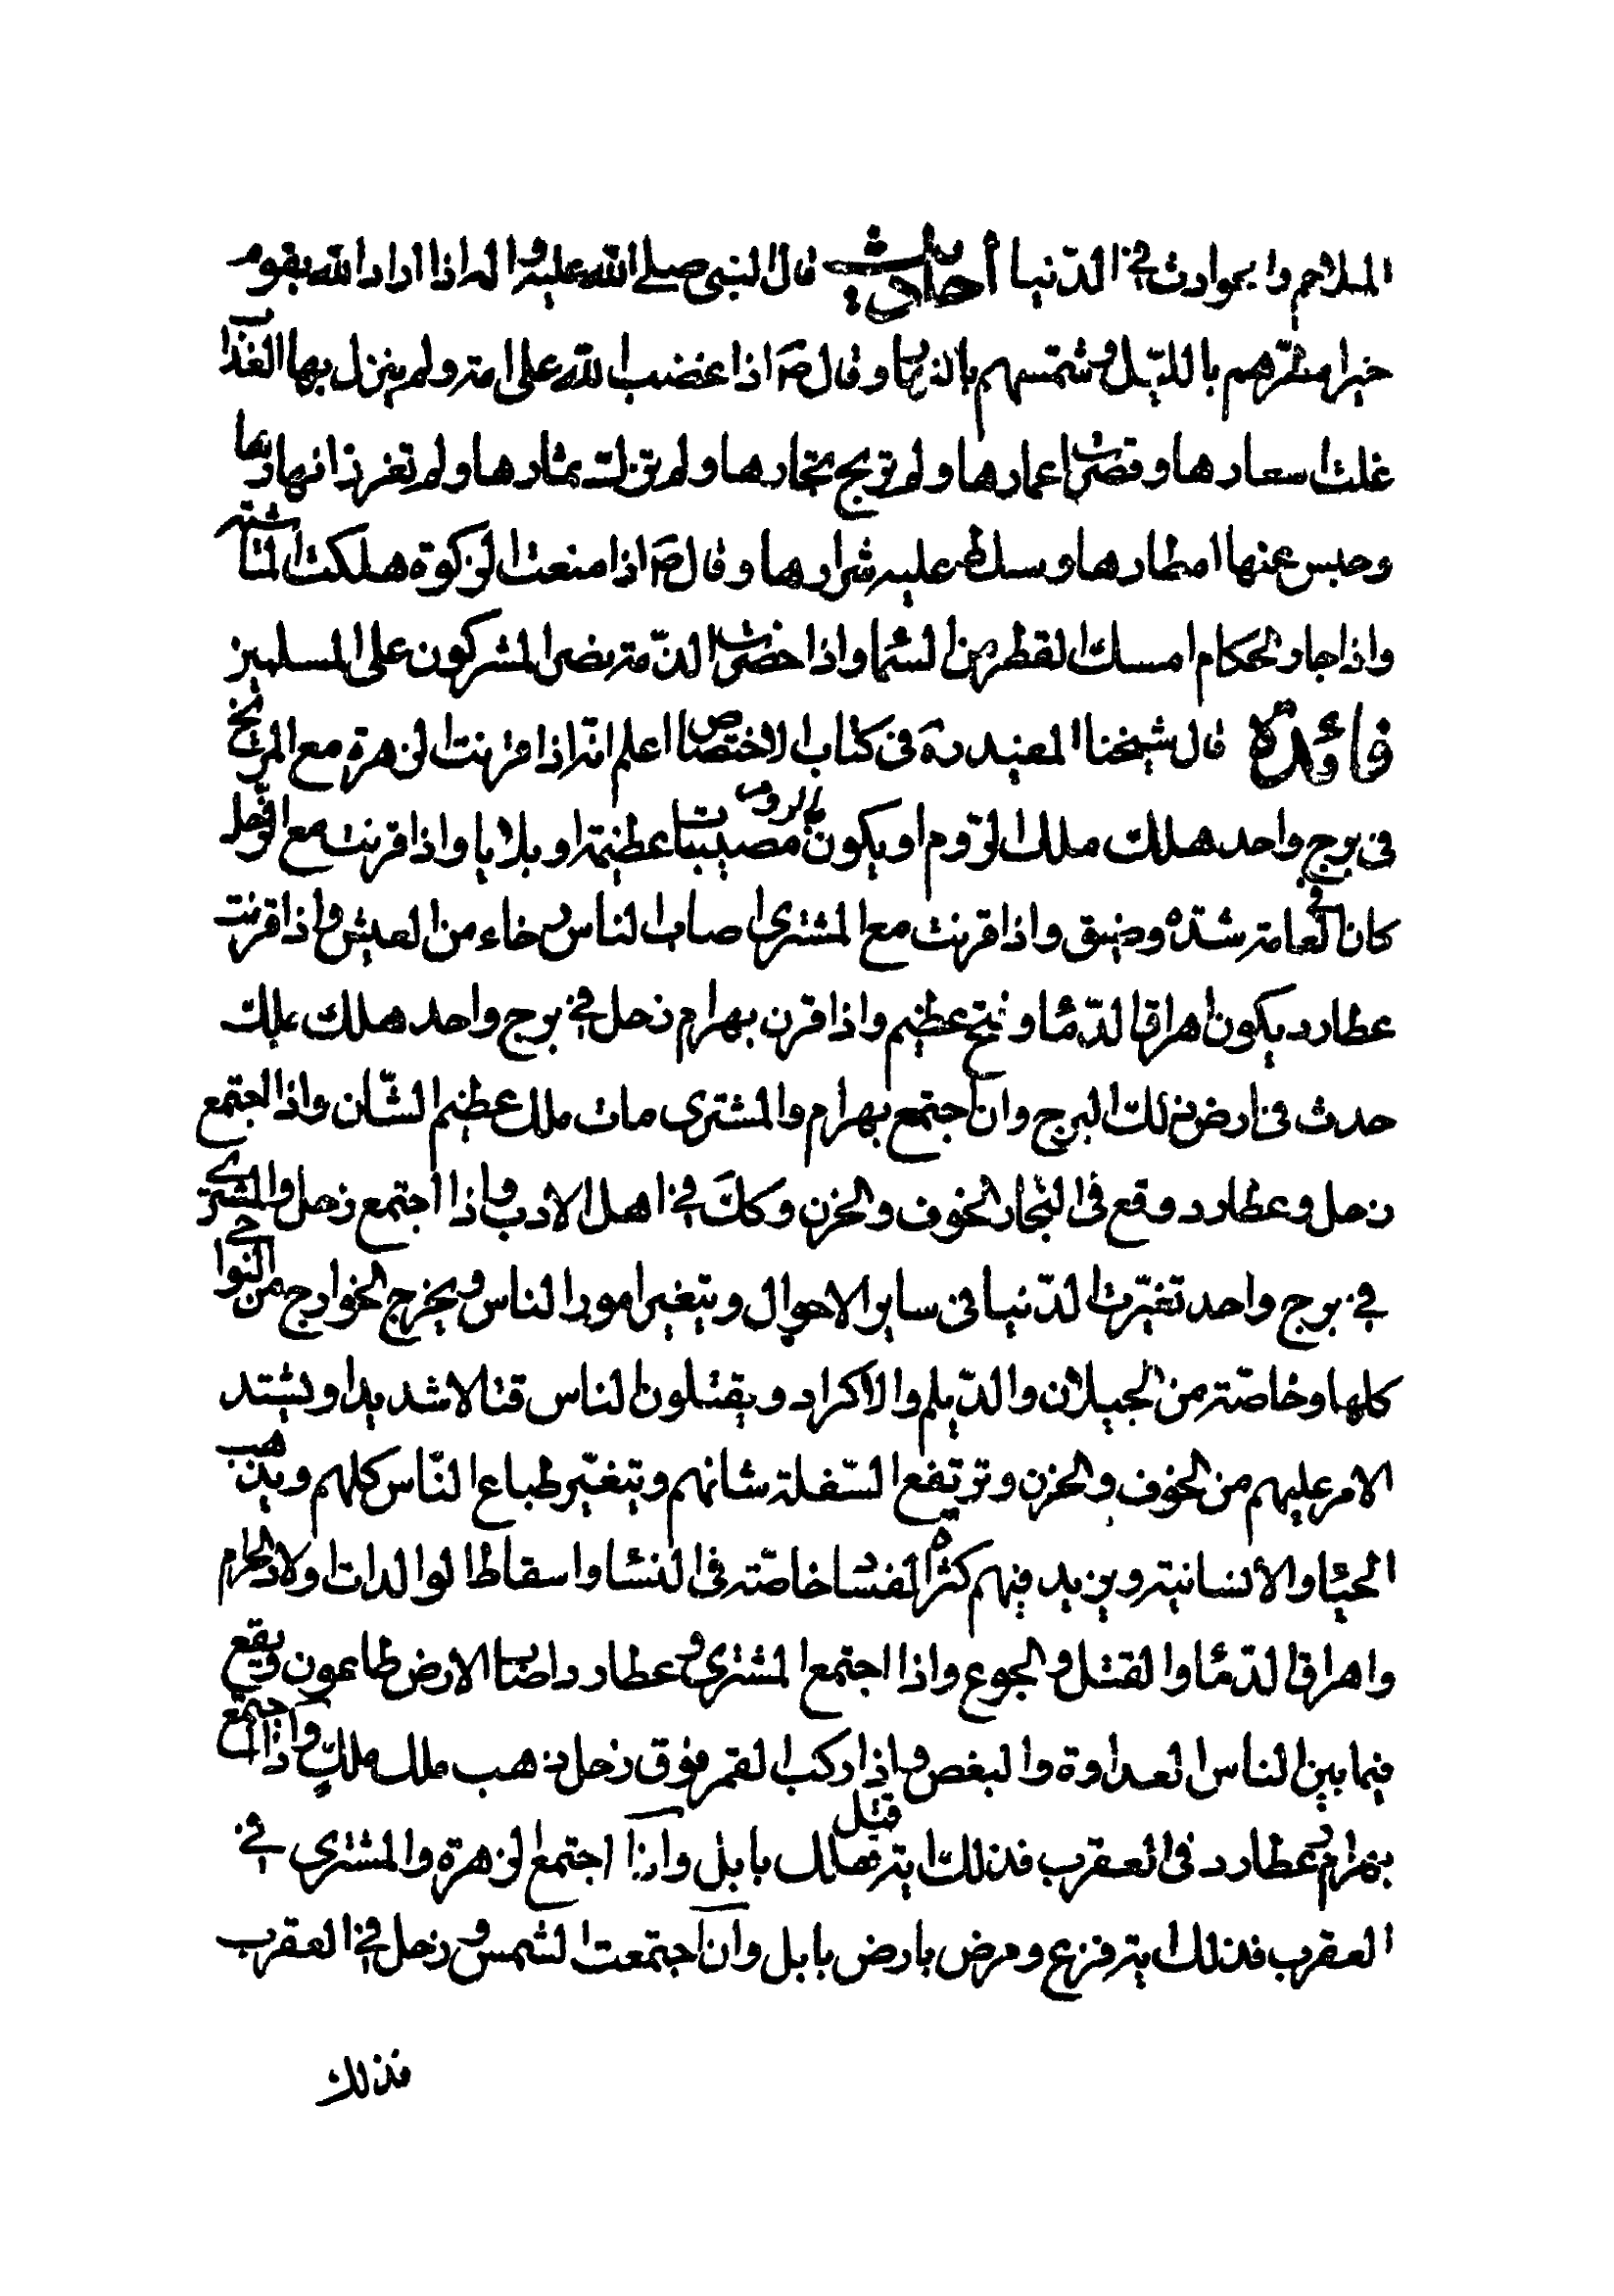 الملاحم والحوادث في الدّنيا أحاديث قال النبي صلى الله عليه واله اذا اراد الله بقوم
خيرا مطّرهم بالليل وشمّسهم بالنهار وقال ص اذا غضب الله على امة ولم ينزل بها العذاب
غلت اسعارها وقصرت اعمارها ولم تربح تجارها ولم تزك ثمارها ولم تغزر انهارها
وحبس عنها امطارها وسلط عليه شرارها وقال ص اذا منعت الزكوة هلكت الماشية
واذا جار الحكام امسك القطر من السماء واذا خفرت الذّمة نصر المشركون على المسلمين
فائدة قال شيخنا المفيد ره في كتاب الاختصاص اعلم انّه اذا قرنت الزهرة مع المريخ
في برج واحد هلك ملك الروم او يكون بالروم مصيبات عظيمة او بلايا واذا قرنت مع الزحل
كان في العامة شدّة وضيق واذا قرنت مع المشتري اصاب الناس رخاء من العيش واذا قرنت
عطارد يكون اهراق الدّماء وفتح عظيم واذا قرن بهرام زحل في برج واحد هلك ملك
حدث في ارض ذلك البرج وان اجتمع بهرام والمشتري مات ملك عظيم الشّان واذا اجتمع
زحل وعطارد وقع في التجار الخوف والحزن وكك في اهل الادب واذا اجتمع زحل والمشتري
في برج واحد تغيّرت الدّنيا في ساير الاحوال وتتغير امور الناس ويخرج الخوارج من النواحي
كلها وخاصّة من الجيلان والدّيلم والاكراد ويقتلون الناس قتالا شديدا ويشتد
الامر عليهم من الخوف والحزن وترتفع السّفلة شانهم وتتغيّر طباع النّاس كلهم ويذهب
الحياء والانسانية ويزيد فيهم كثرة المفساد خاصّة في النساء واسقاط الوالدات اولاد الحرام
واهراق الدّماء والقتل والجوع واذا اجتمع المشتري وعطارد اصاب الارض طاعون ويقع
فيما بين الناس العداوة والبغض واذا ركب القمر فوق زحل ذهب ملك ملك واذا اجتمع
بهرام وعطارد في العقرب فذلك اية قتل ملك بابل واذا اجتمع الزهرة والمشتري في
العقرب فذلك اية فزع ومرض بارض بابل وان اجتمعت الشمس وزحل في العقرب
فذلك